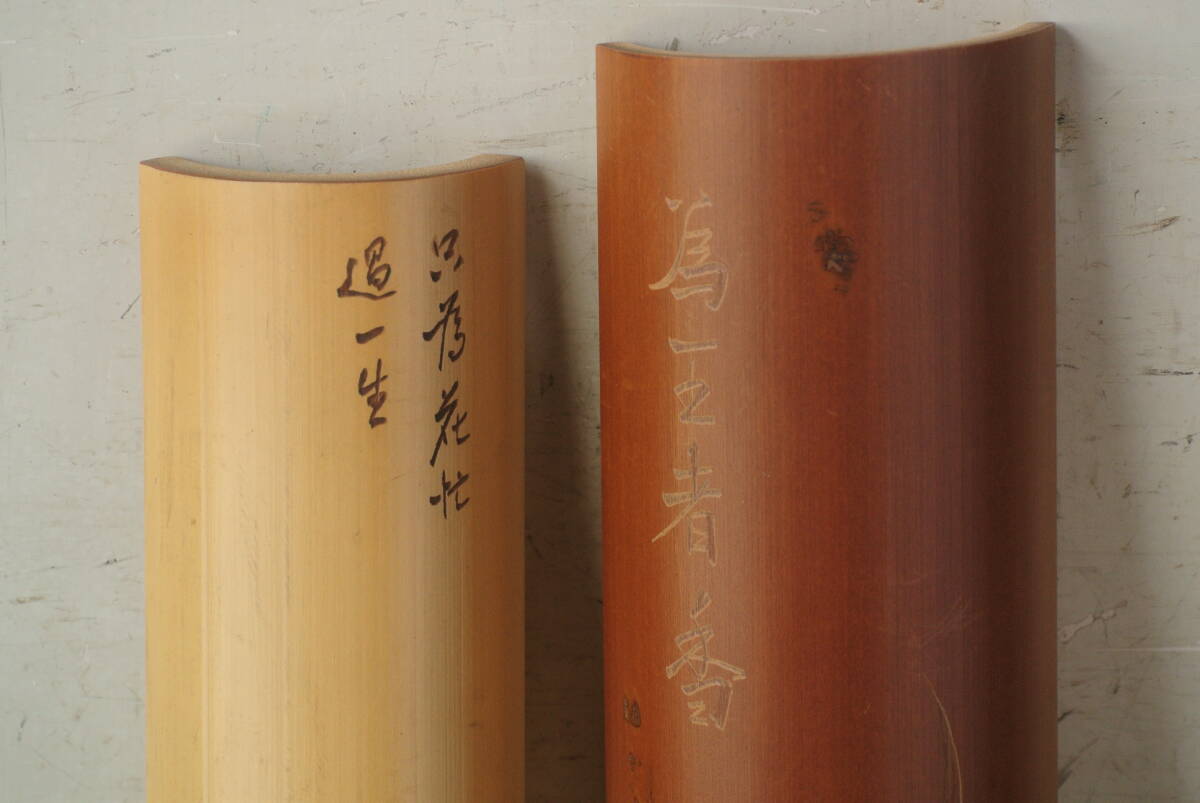 只為花忙
過一生
為王者香